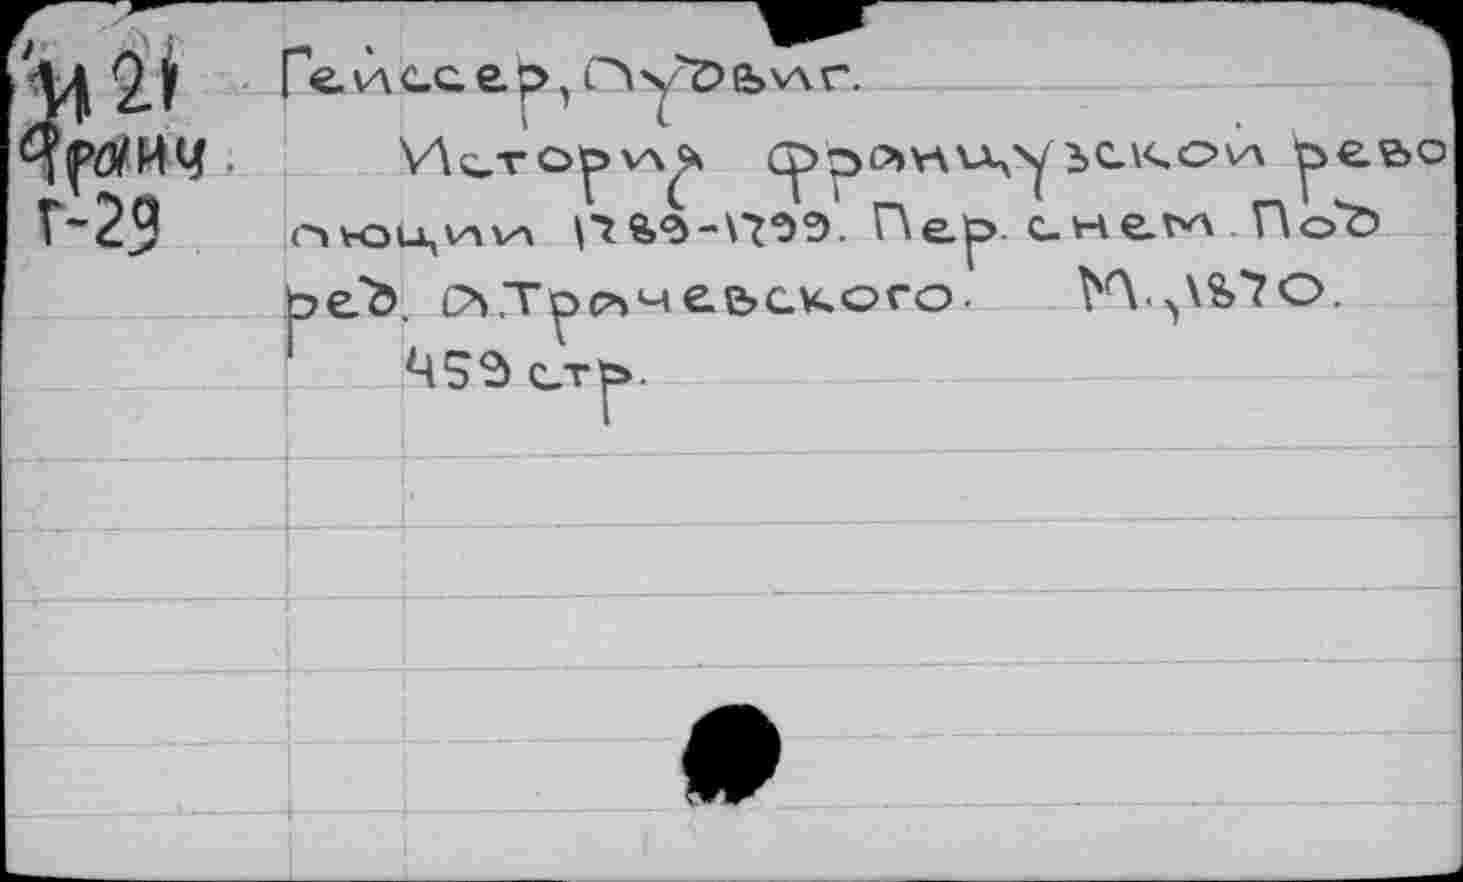 И21
Франц.
Г-29
Гейссер, Лудвиг.
История французской рево
люции 1789-1799. Пер. с нем. Под
ред. А.Трачевского. М., 1870.
459 стр.